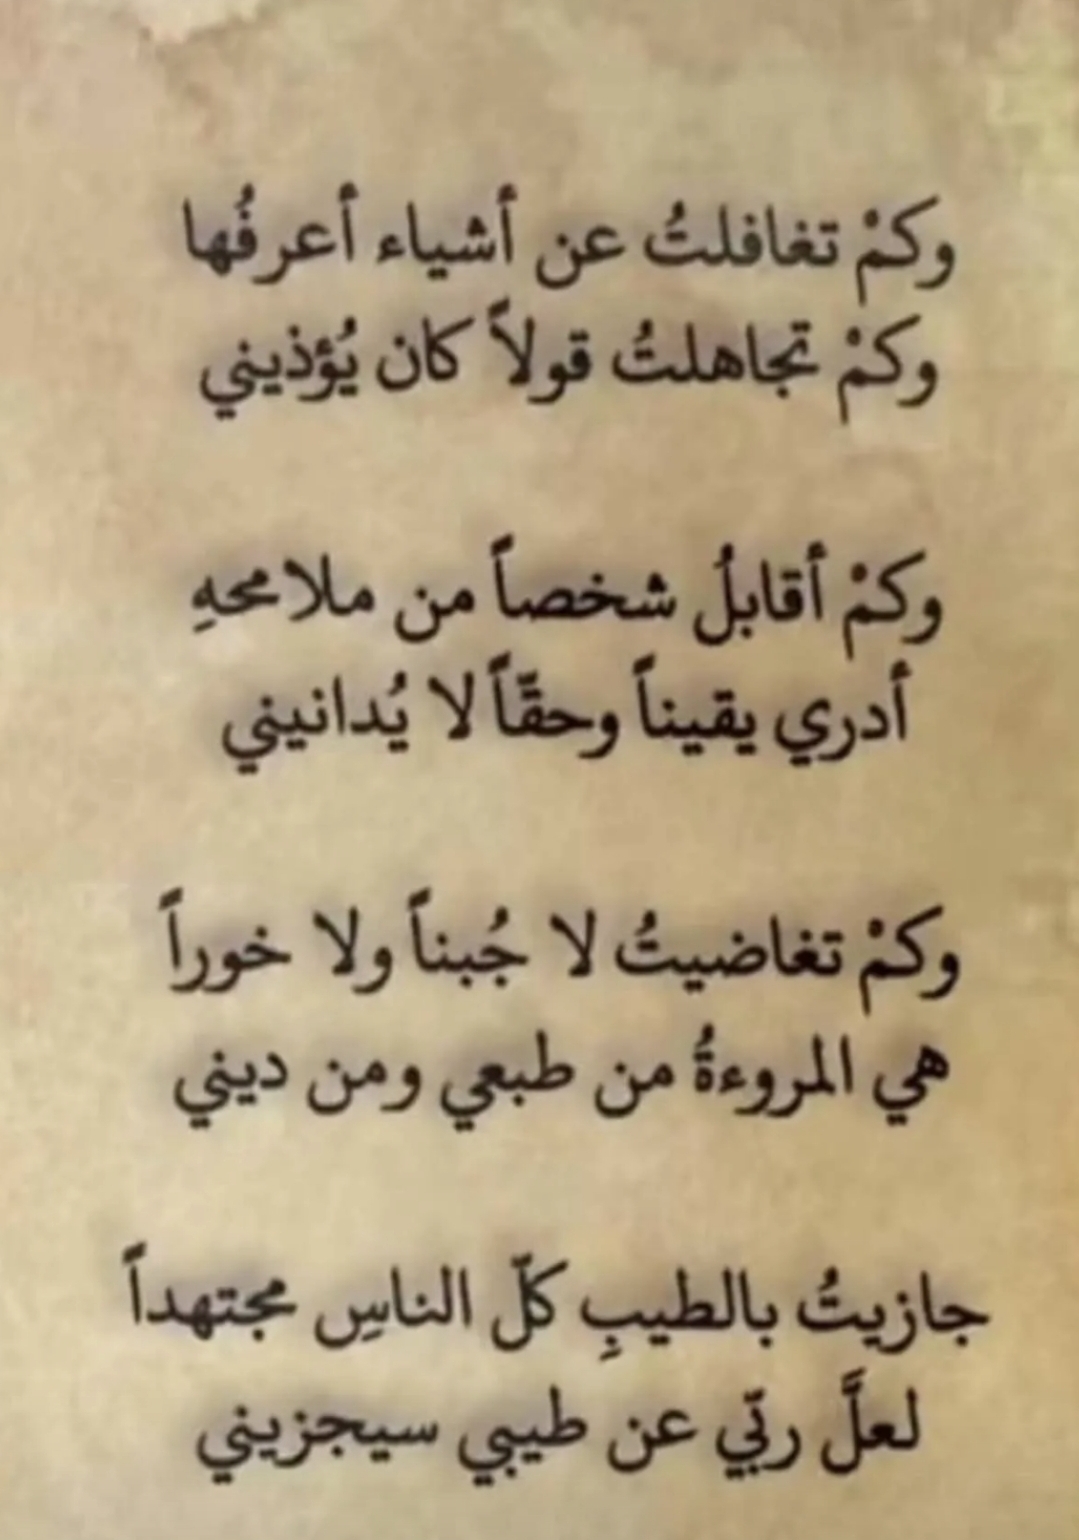 وكمْ تغافلتُ عن أشياء أعرفُها
وكمْ تجاهلتُ قولاً كان يُؤذيني
وكمْ أقابلُ شخصاً من ملامحهِ
أدري يقيناً وحقّاً لا يُدانيني
وكمْ تغاضيتُ لا جُبناً ولا خوراً
هي المروءةُ من طبعي ومن ديني
جازيتُ بالطيبِ كلّ الناسِ مجتهداً
لعلَّ ربّي عن طيبي سيجزيني